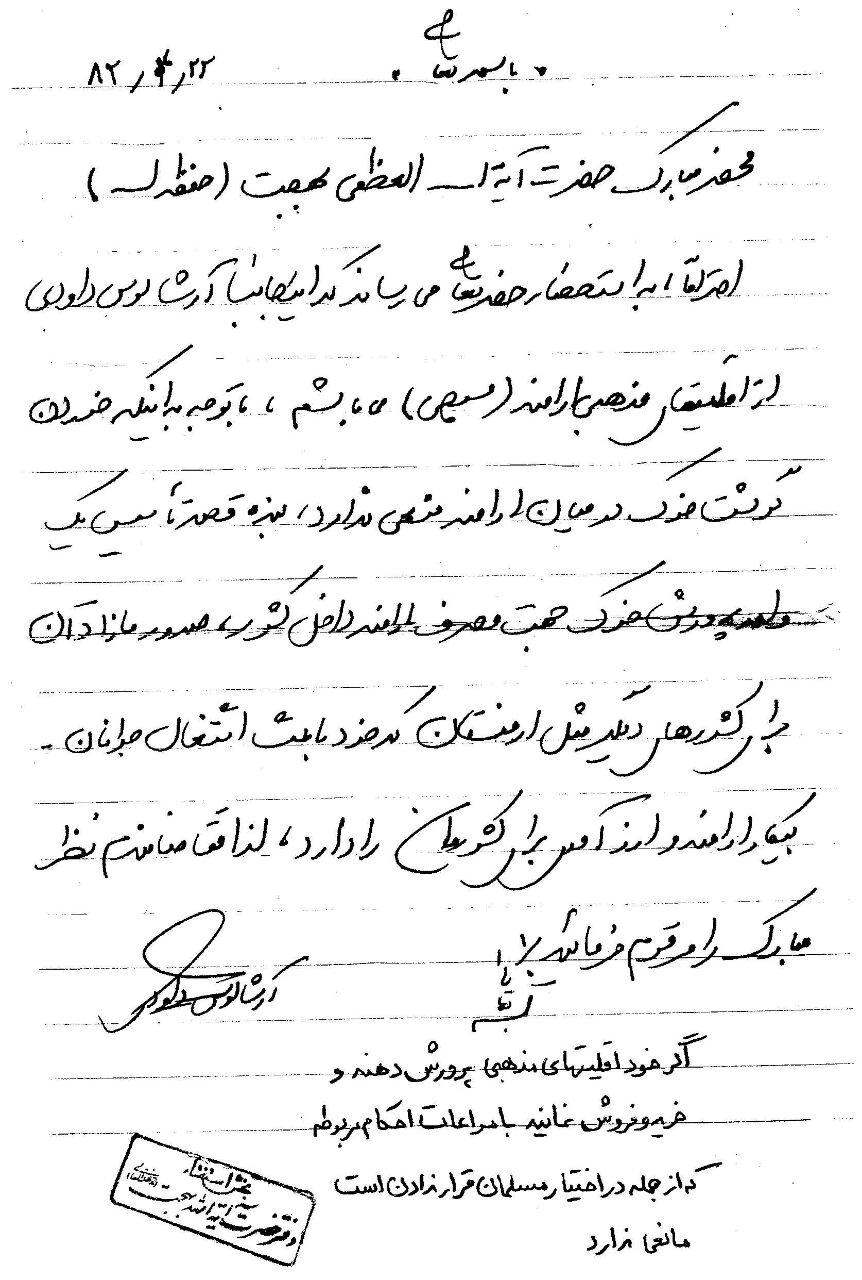 باسمه تعالی
۸۲/۴/۲۲
محضر مبارک حضرت آیة اله العظمی بهجت (حفظه اله)
احتراماً، به استحضار حضرتعالی می رساند که اینجانب آرشالوس داودی
از اقلیتهای مذهبی ارامنه (مسیحی) می باشم، با توجه به اینکه خوردن
گوشت خوک در میان ارامنه منعی ندارد، بنده قصد تأسیس یک
واحد پرورش خوک جهت مصرف ارامنه داخل کشور، صدور مازاد آن
برای کشورهای دیگر مثل ارمنستان که خود باعث اشتغال جوانان
بیکار ارامنه و ارزآوری برای کشورمان را دارد، لذا تقاضامندم نظر
مبارک را مرقوم فرمائید
آرشالوس داودی
بسمه تعالی
اگر خود اقلیتهای مذهبی پرورش دهند و
خرید و فروش نمایند با مراعات احکام مربوطه
که از جمله در اختیار مسلمان قرار ندادن است
مانعی ندارد
بخش استفتاء
دفتر حضرت آیة الله بهجت